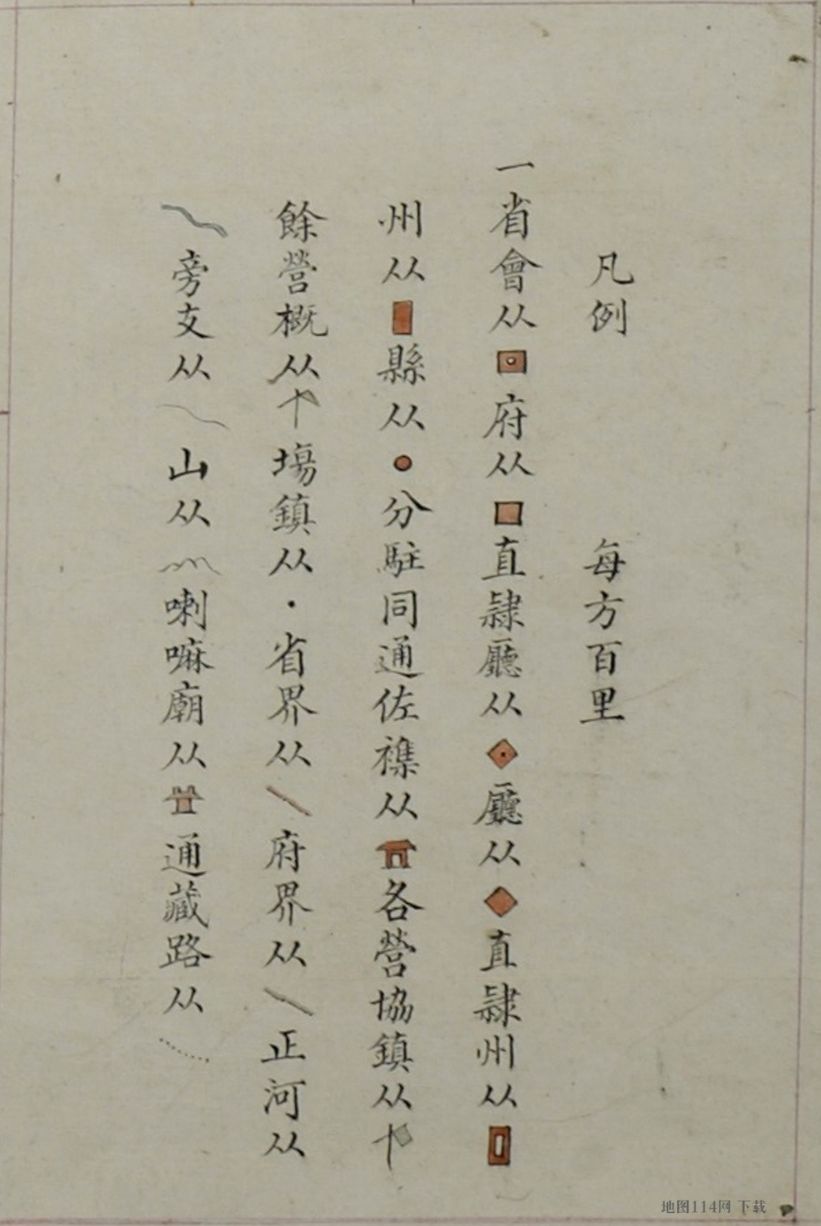 凡例 每方百里
一省會从 府从 直隸廳从 廳从 直隸州从
州从 縣从 分駐同通佐襍从 各營協鎮从
餘營概从 塲鎮从 省界从 府界从 正河从
旁支从 山从 喇嘛廟从 通藏路从
地图114网 下载